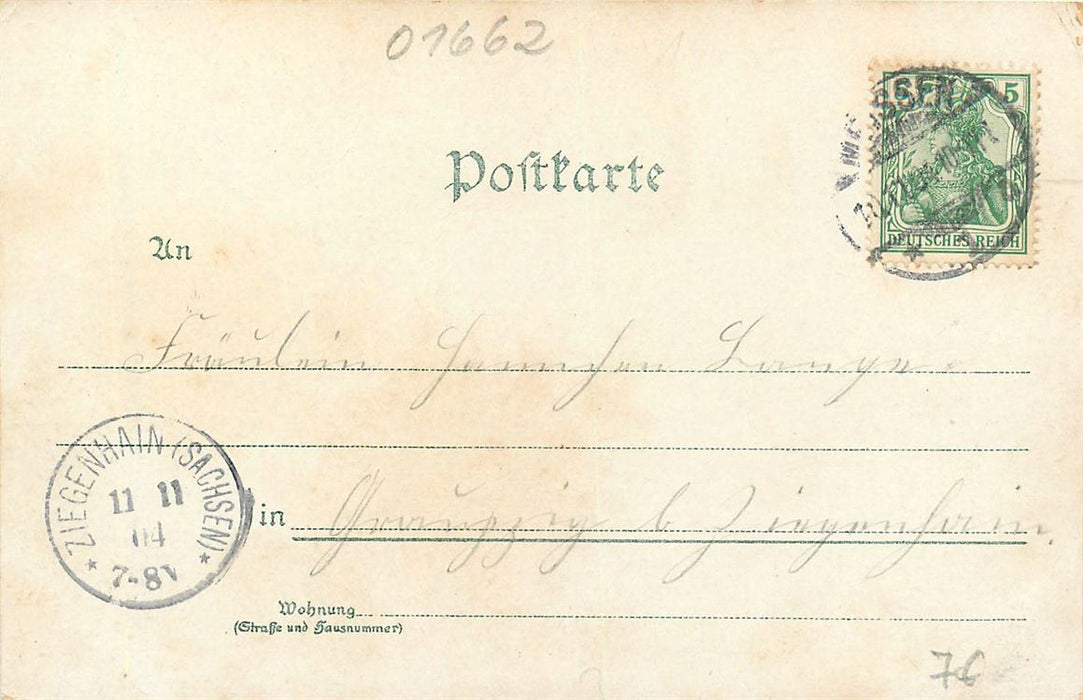 01662
5 5
DEUTSCHES REICH
Postkarte
An
Fräulein Hannchen Lange.
ZIEGENHAIN (SACHSEN)
11 11
04
7-8V
in Graupzig b Ziegenhain.
Wohnung
(Straße und Hausnummer)
76